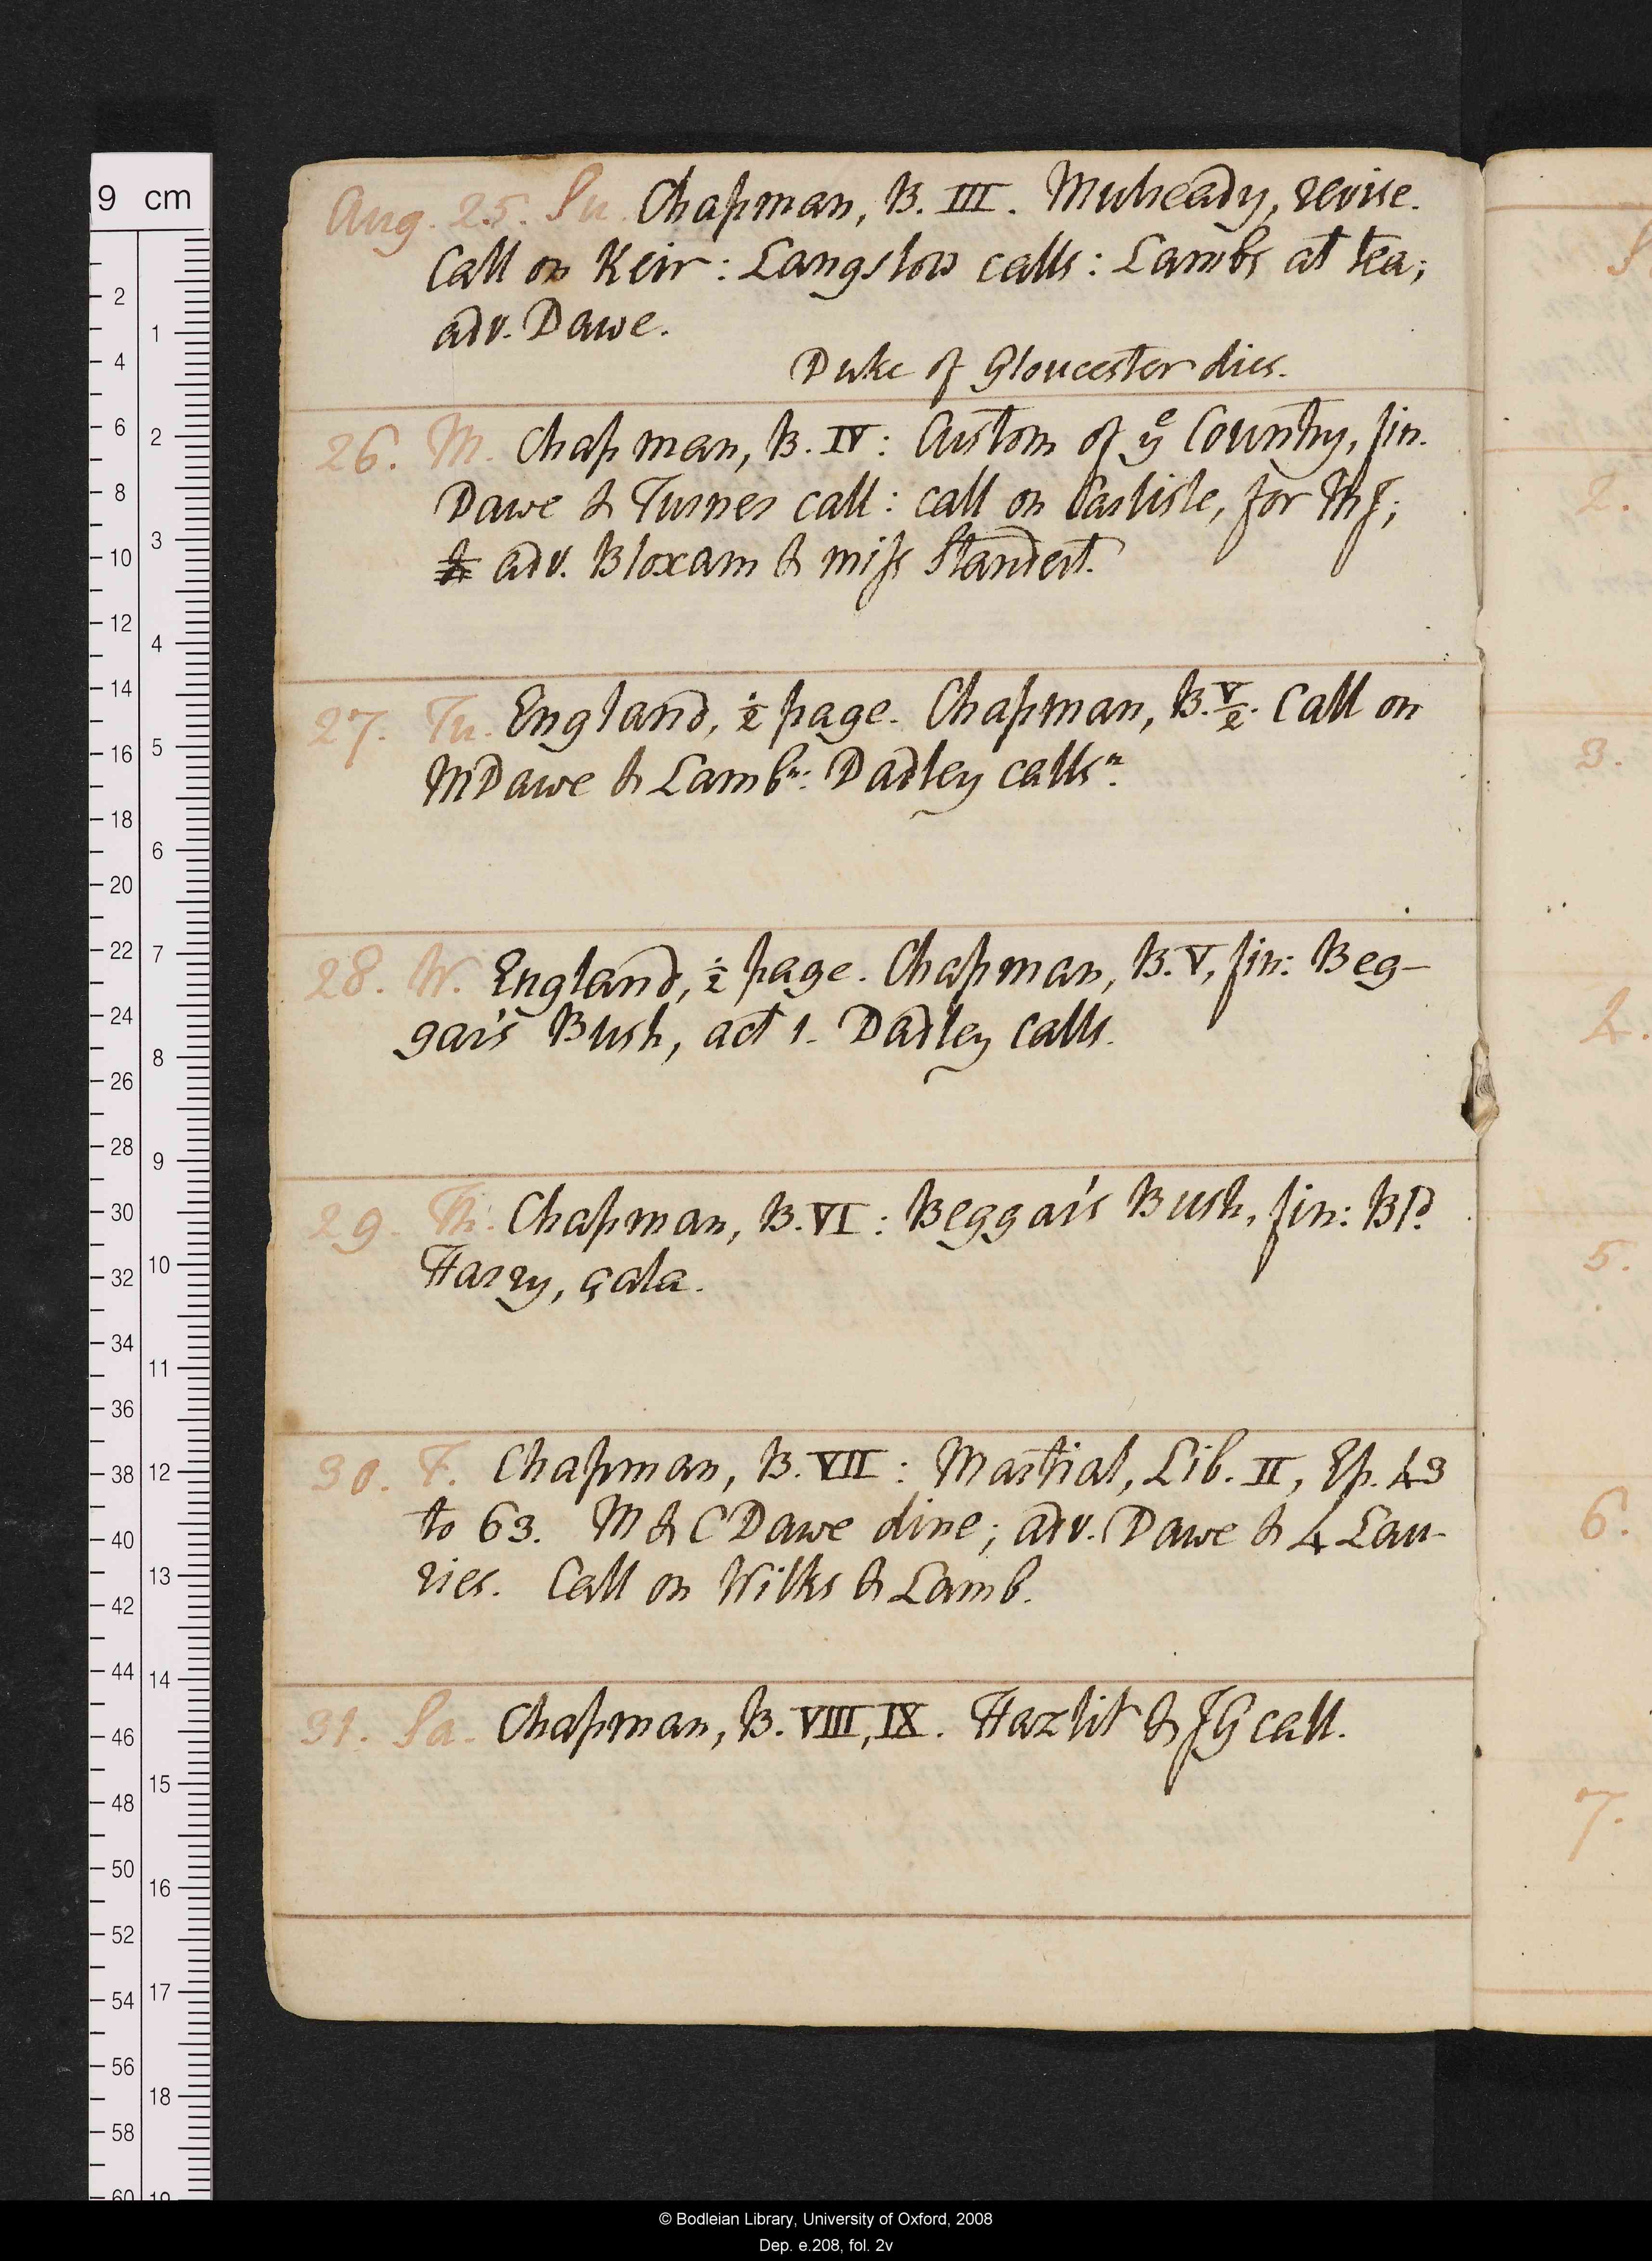 Aug. 25. Su. Chapman, B. III. Mulready, revise.
Call on Keir: Langslow calls: Lambs at tea;
adv. Dawe.
Duke of Gloucester dies.
26. M. Chapman, B. IV: Custom of yᵉ Country, fin.
Dawe & Turner call: call on Carlisle, for MJ;
& adv. Bloxam & miss Standert.
27. Tu. England, ½ page. Chapman, B. V/2. Call on
MDawe & Lambⁿ: Dadley callsⁿ.
28. W. England, ½ page. Chapman, B. V, fin: Beg-
gar's Bush, act 1. Dadley calls.
29. Th. Chapman, B. VI: Beggar's Bush, fin: Bᵈ
Harry, çala.
30. F. Chapman, B. VII: Martial, Lib. II, Ep. 43
to 63. M & C Dawe dine; adv. Dawe & 4 Lau-
ries. Call on Wilks & Lamb.
31. Sa. Chapman, B. VIII, IX. Hazlit & JG call.
2.
3.
4.
5.
6.
7.
9 cm
2 4 6 8 10 12 14 16 18 20 22 24 26 28 30 32 34 36 38 40 42 44 46 48 50 52 54 56 58 60
1 2 3 4 5 6 7 8 9 10 11 12 13 14 15 16 17 18 19
© Bodleian Library, University of Oxford, 2008
Dep. e.208, fol. 2v